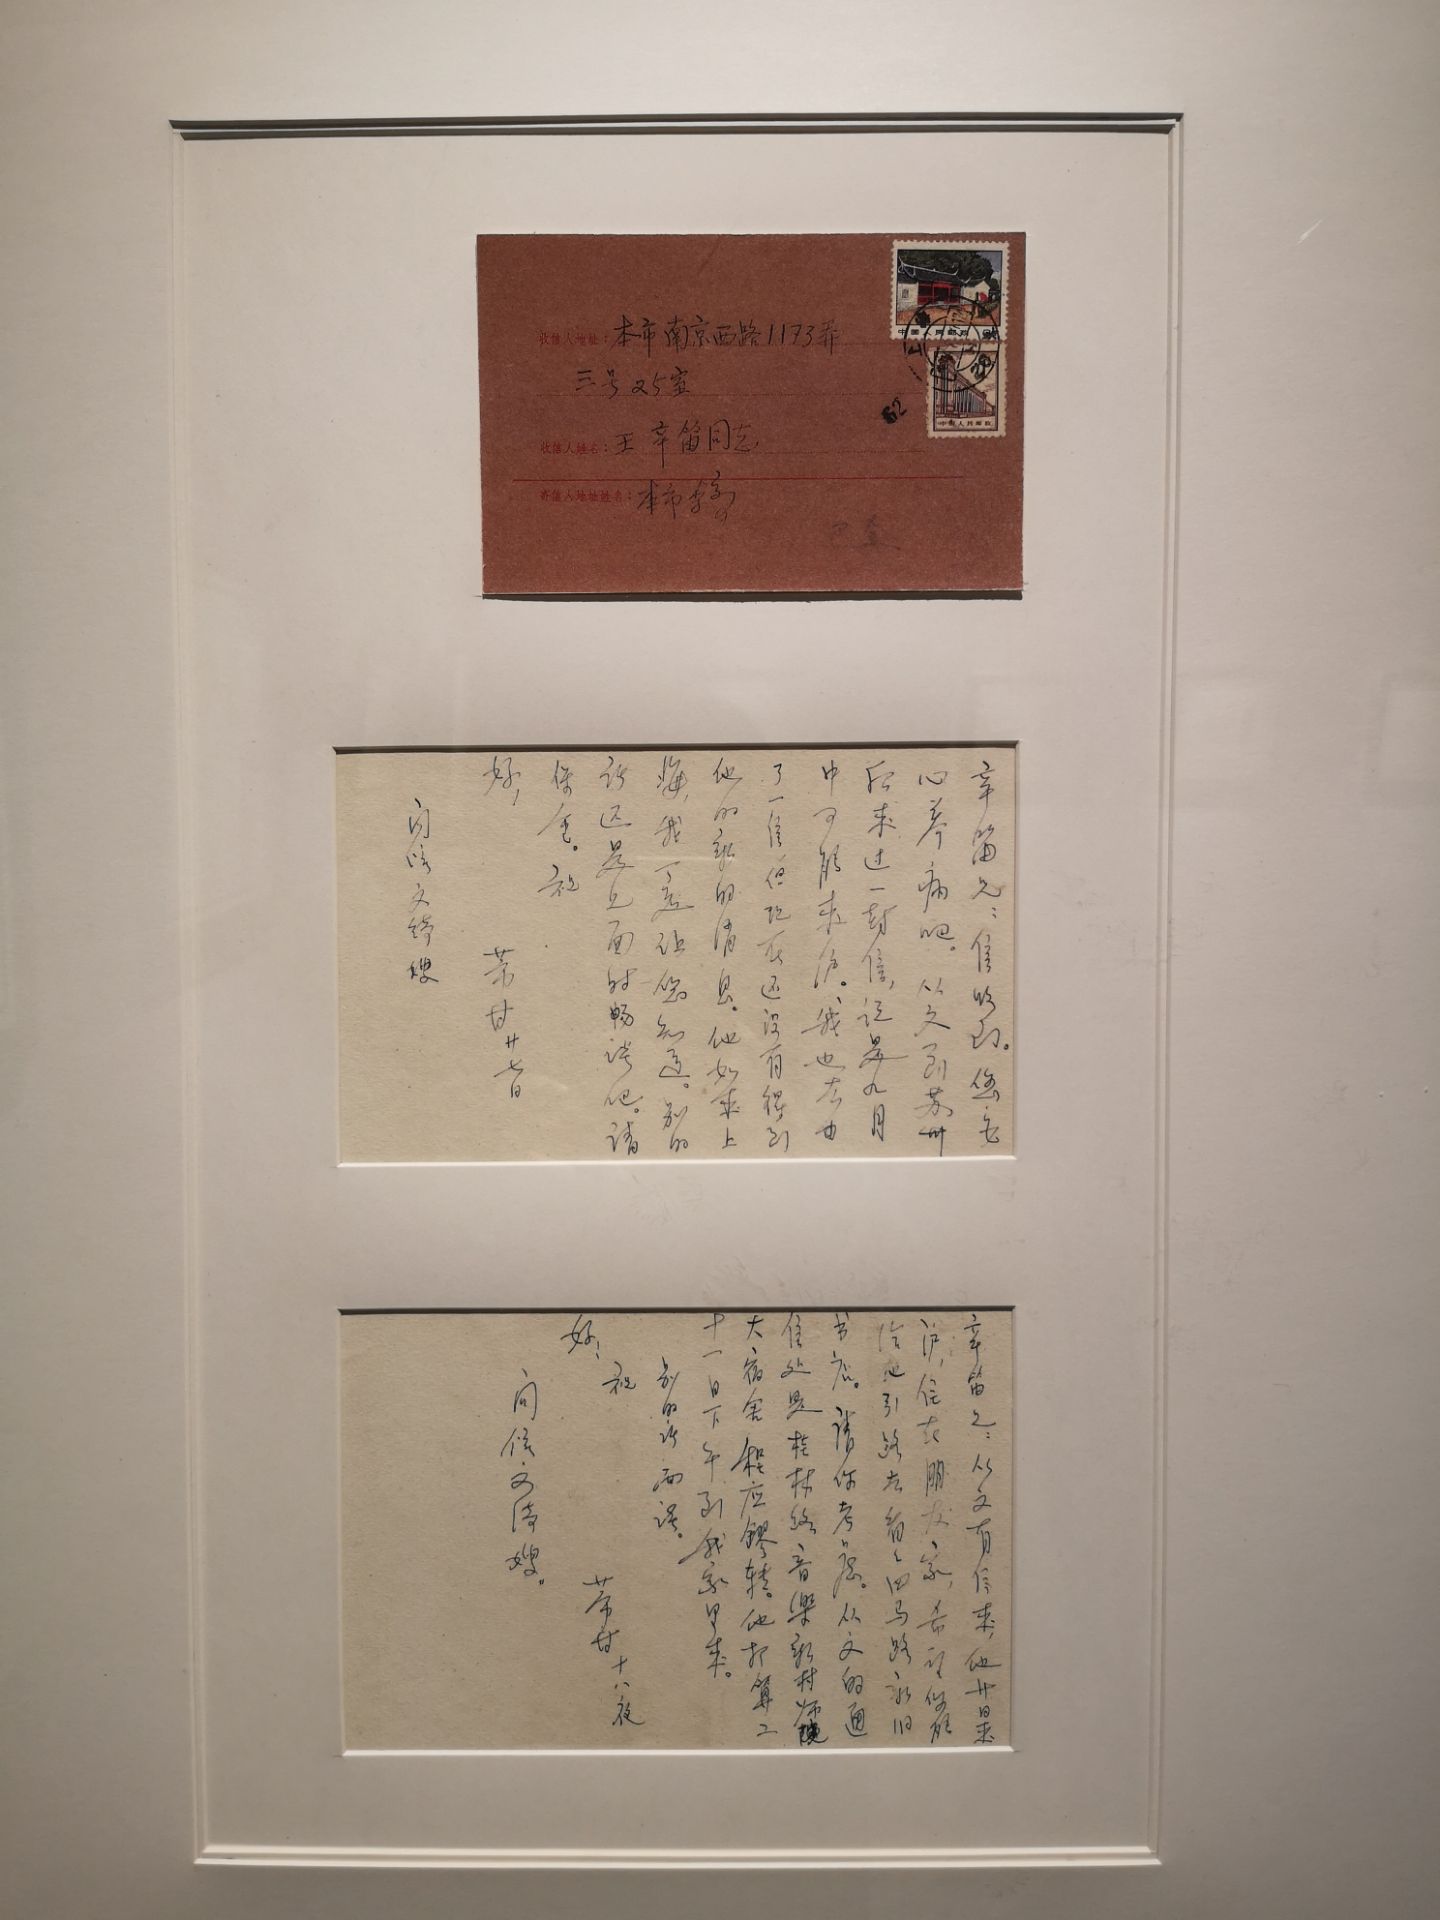 收信人地址：本市南京西路1173弄
三号25室
收信人姓名：王辛笛同志
寄信人地址姓名：本市李寄
中国人民邮政
中国人民邮政
62
辛笛兄：信收到。您是
心脏病吧。从文到苏州
后来过一封信，说是九月
中可能来沪。我也去
了一信，但现在还没有得到
他的新的消息。他如来上
海，我一定让您知道。别的
话还是见面时畅谈吧。请
保重。祝
好！
芾甘 廿七日
问候文绮嫂
辛笛兄：从文有信来，他廿日来
沪，住在朋友家，希望你能
给他引路去看看四马路新旧
书店。请你考虑。从文的通
信处是桂林路音乐新村师院
大宿舍程应镠转。他打算二
十一日下午到我家里来。
别的话面谈。
祝
好！
芾甘 十八夜
问候文绮嫂。